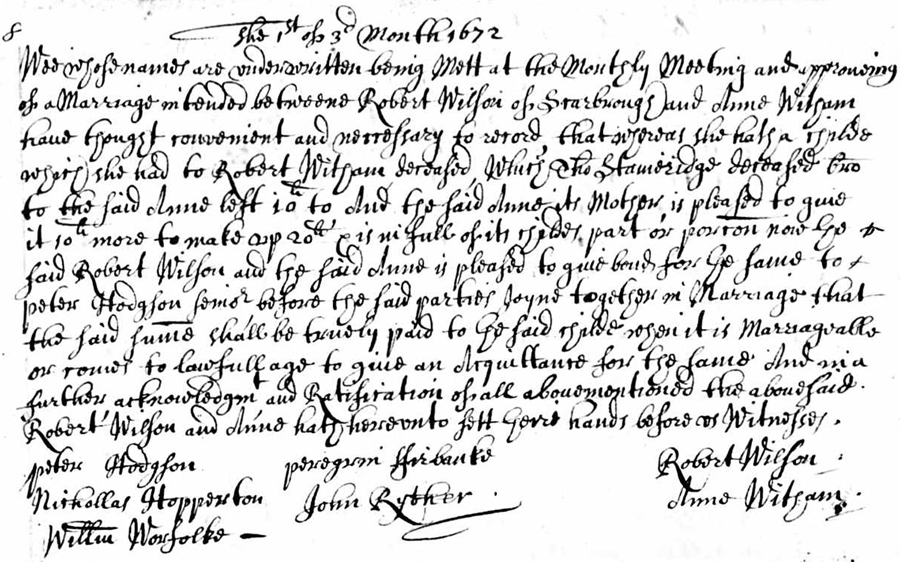 8 the 1st of 3d Month 1672
Wee whose names are underwritten being Mett at the Monthly Meeting and approueing
of a Marriage intended betweene Robert Wilson of Scarbrough and Anne Witham
haue thought conuenient and neccessary to record that whereas she hath a Childe
which she had to Robert Witham deceased which Tho Stameridge deceased bro
to the said Anne left 10lb to And the said Anne its Mother is pleased to giue
it 10lb more to make up 20lb is in full of its Childes part or porcon now he
said Robert Wilson and the said Anne is pleased to giue bond for he same to
peter Hodgson senior before the said parties Joyne together in Marriage that
the said sume shall be truely paid to he said childe when it is Marriageable
or comes to lawfull age to giue an Acquittance for the same And in a
further acknowledgmt and Ratification of all abouementioned the abouesaid
Robert Wilson and Anne hath hereunto sett there hands before us Witnesses.
peter Hodgson peregrin ffirbanke Robert Wilson
Nichollas Hopperton John Ryther Anne Witham
Willm Worfolke